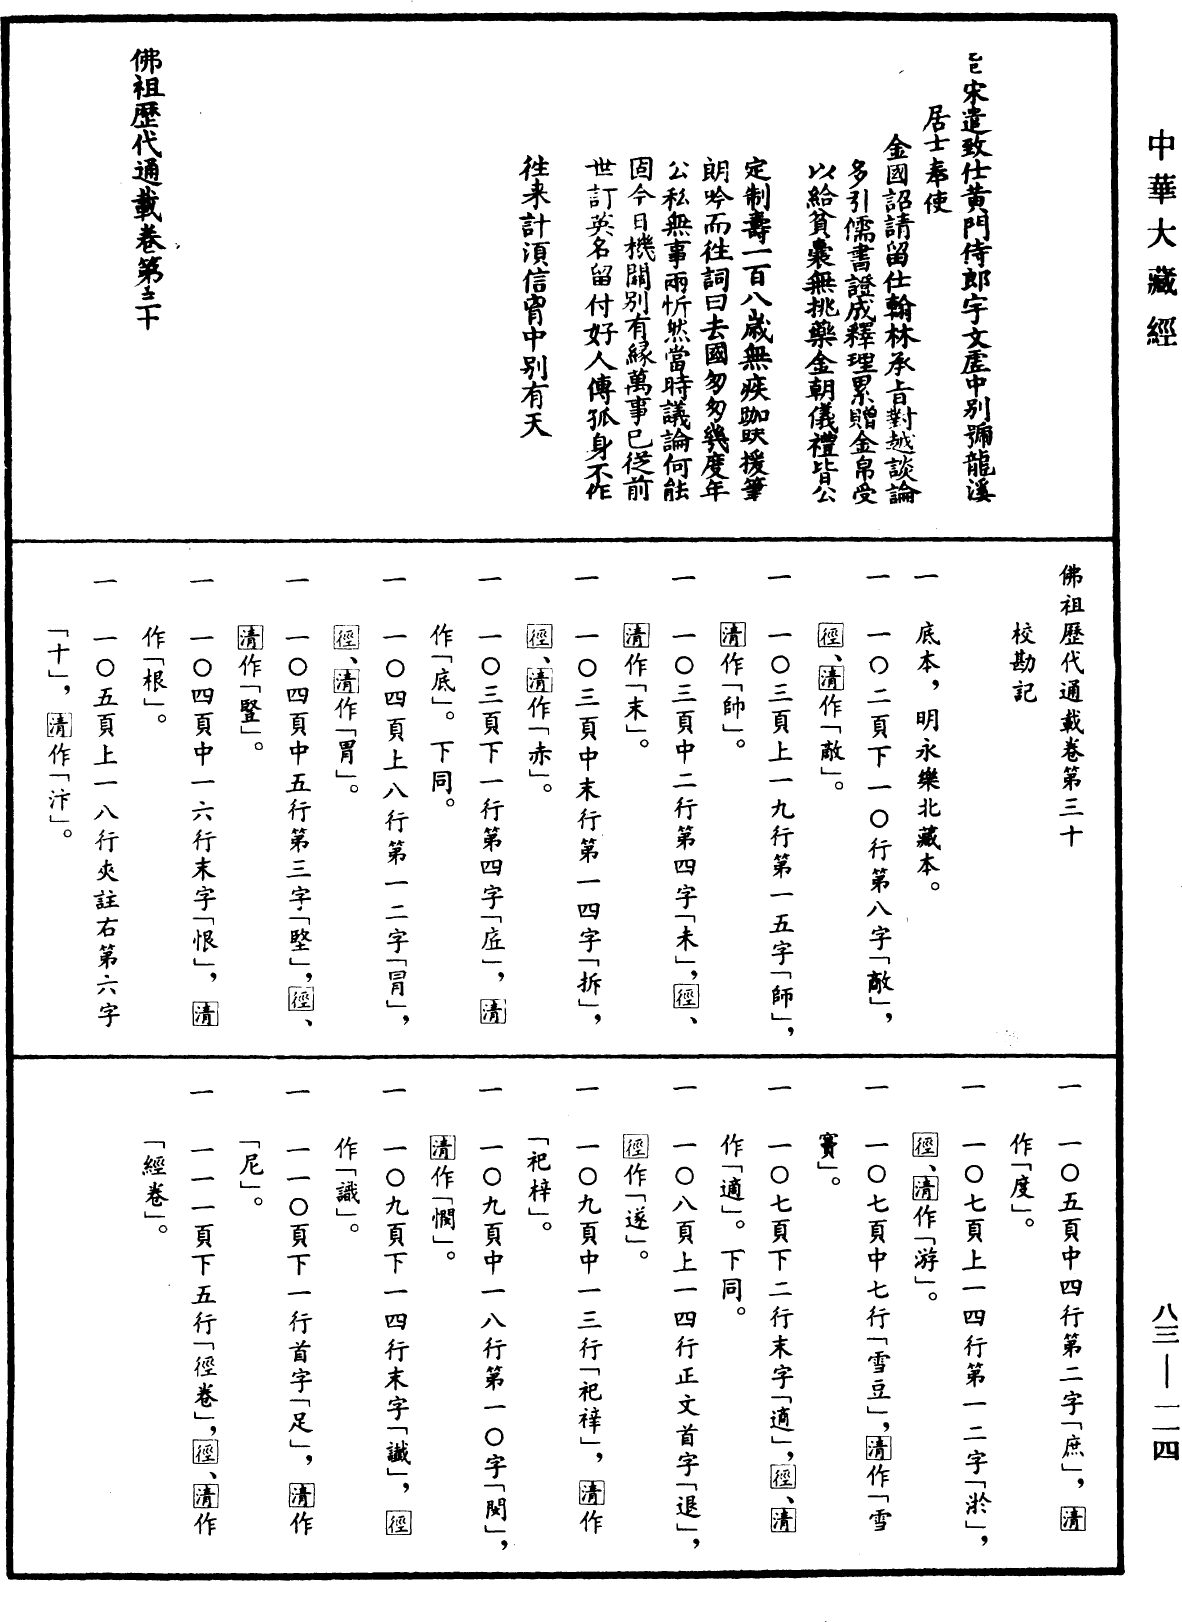 中華大藏經
宋遣致仕黃門侍郎宇文虛中別號龍溪
居士奉使
金國詔請留仕翰林承旨對越談論
多引儒書證成釋理累贈金帛受
以給貧囊無挑藥金朝儀禮皆公
定制壽一百八歲無疾跏趺援筆
朗吟而徃詞曰去國匆匆幾度年
公私無事兩忻然當時議論何能
固今日機關別有緣萬事已從前
世訂英名留付好人傳孤身不作
徃来計須信胷中別有天
佛祖歷代通載卷第三十
佛祖歷代通載卷第三十
校勘記
一　底本，明永樂北藏本。
一　一〇二頁下一〇行第八字「敵」，
徑、清作「敵」。
一　一〇三頁上一九行第一五字「師」，
清作「帥」。
一　一〇三頁中二行第四字「未」，徑、
清作「末」。
一　一〇三頁中末行第一四字「拆」，
徑、清作「赤」。
一　一〇三頁下一行第四字「㡳」，清
作「底」。下同。
一　一〇四頁上八行第一二字「冐」，
徑、清作「胃」。
一　一〇四頁中五行第三字「堅」，徑、
清作「豎」。
一　一〇四頁中一六行末字「恨」，清
作「根」。
一　一〇五頁上一八行夾註右第六字
「十」，清作「汴」。
一　一〇五頁中四行第二字「庶」，清
作「度」。
一　一〇七頁上一四行第一二字「淤」，
徑、清作「游」。
一　一〇七頁中七行「雪豆」，清作「雪
竇」。
一　一〇七頁下二行末字「適」，徑、清
作「適」。下同。
一　一〇八頁上一四行正文首字「退」，
徑作「遂」。
一　一〇九頁中一三行「祀䄕」，清作
「祀梓」。
一　一〇九頁中一八行第一〇字「閔」，
清作「憫」。
一　一〇九頁下一四行末字「讖」，徑
作「識」。
一　一一〇頁下一行首字「足」，清作
「尼」。
一　一一一頁下五行「徑卷」，徑、清作
「經卷」。
八三—一一四